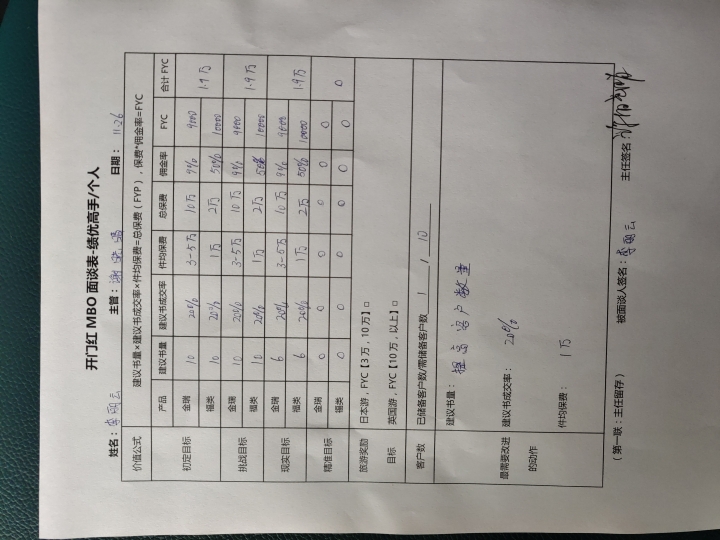 开门红 MBO 面谈表-绩优高手/个人
姓名：李丽云 主管： 日期：11.26
价值公式 建议书量×建议书成交率×件均保费=总保费（FYP），保费*佣金率=FYC
产品 建议书量 建议书成交率 件均保费 总保费 佣金率 FYC 合计 FYC
初定目标 金瑞 10 20% 3-5万 10万 9% 9000 1.9万
福类 10 20% 1万 2万 50% 10000
挑战目标 金瑞 10 20% 3-5万 10万 9% 9000 1.9万
福类 10 20% 1万 2万 50% 10000
现实目标 金瑞 6 20% 3-5万 10万 9% 9000 1.9万
福类 6 20% 1万 2万 50% 10000
精准目标 金瑞 0 0 0 0 0 0 0
福类 0 0 0 0 0 0
旅游奖励 日本游，FYC【3万，10万】□
目标 英国游，FYC【10万，以上】□
客户数 已储备客户数/需储备客户数 1 / 10
最需要改进 建议书量：提高客户数量
的动作 建议书成交率：20%
件均保费：1万
（第一联：主任留存） 被面谈人签名：李丽云 主任签名：